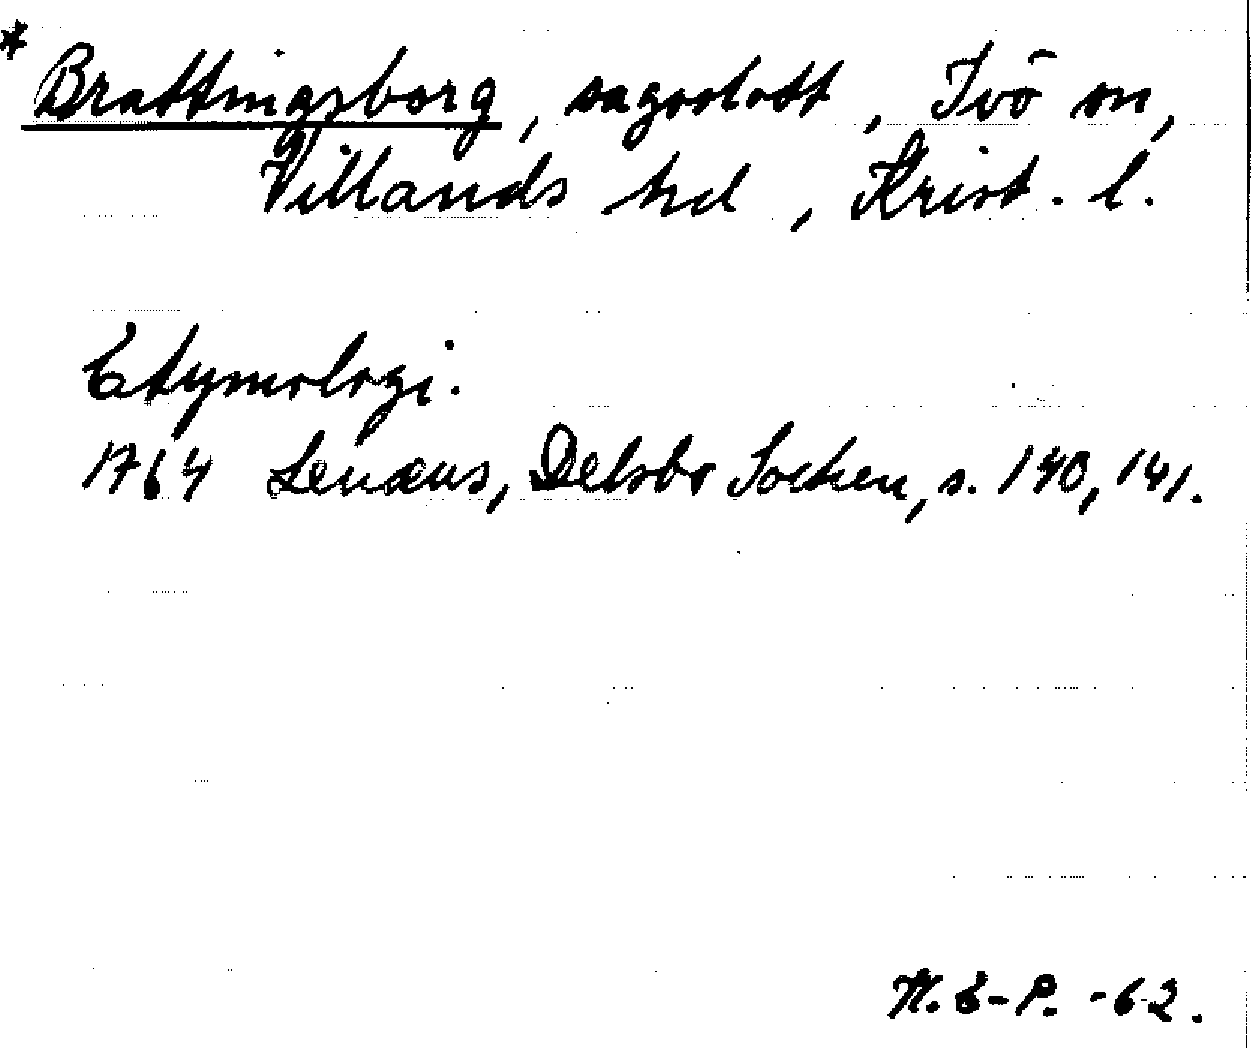 * Brattingsborg, sagoslott, Ivö sn,
Villands hd, Krist. l.
Etymologi.
1764 Lenæus, Delsbo Socken, s. 140, 141.
N. E-P. -62.